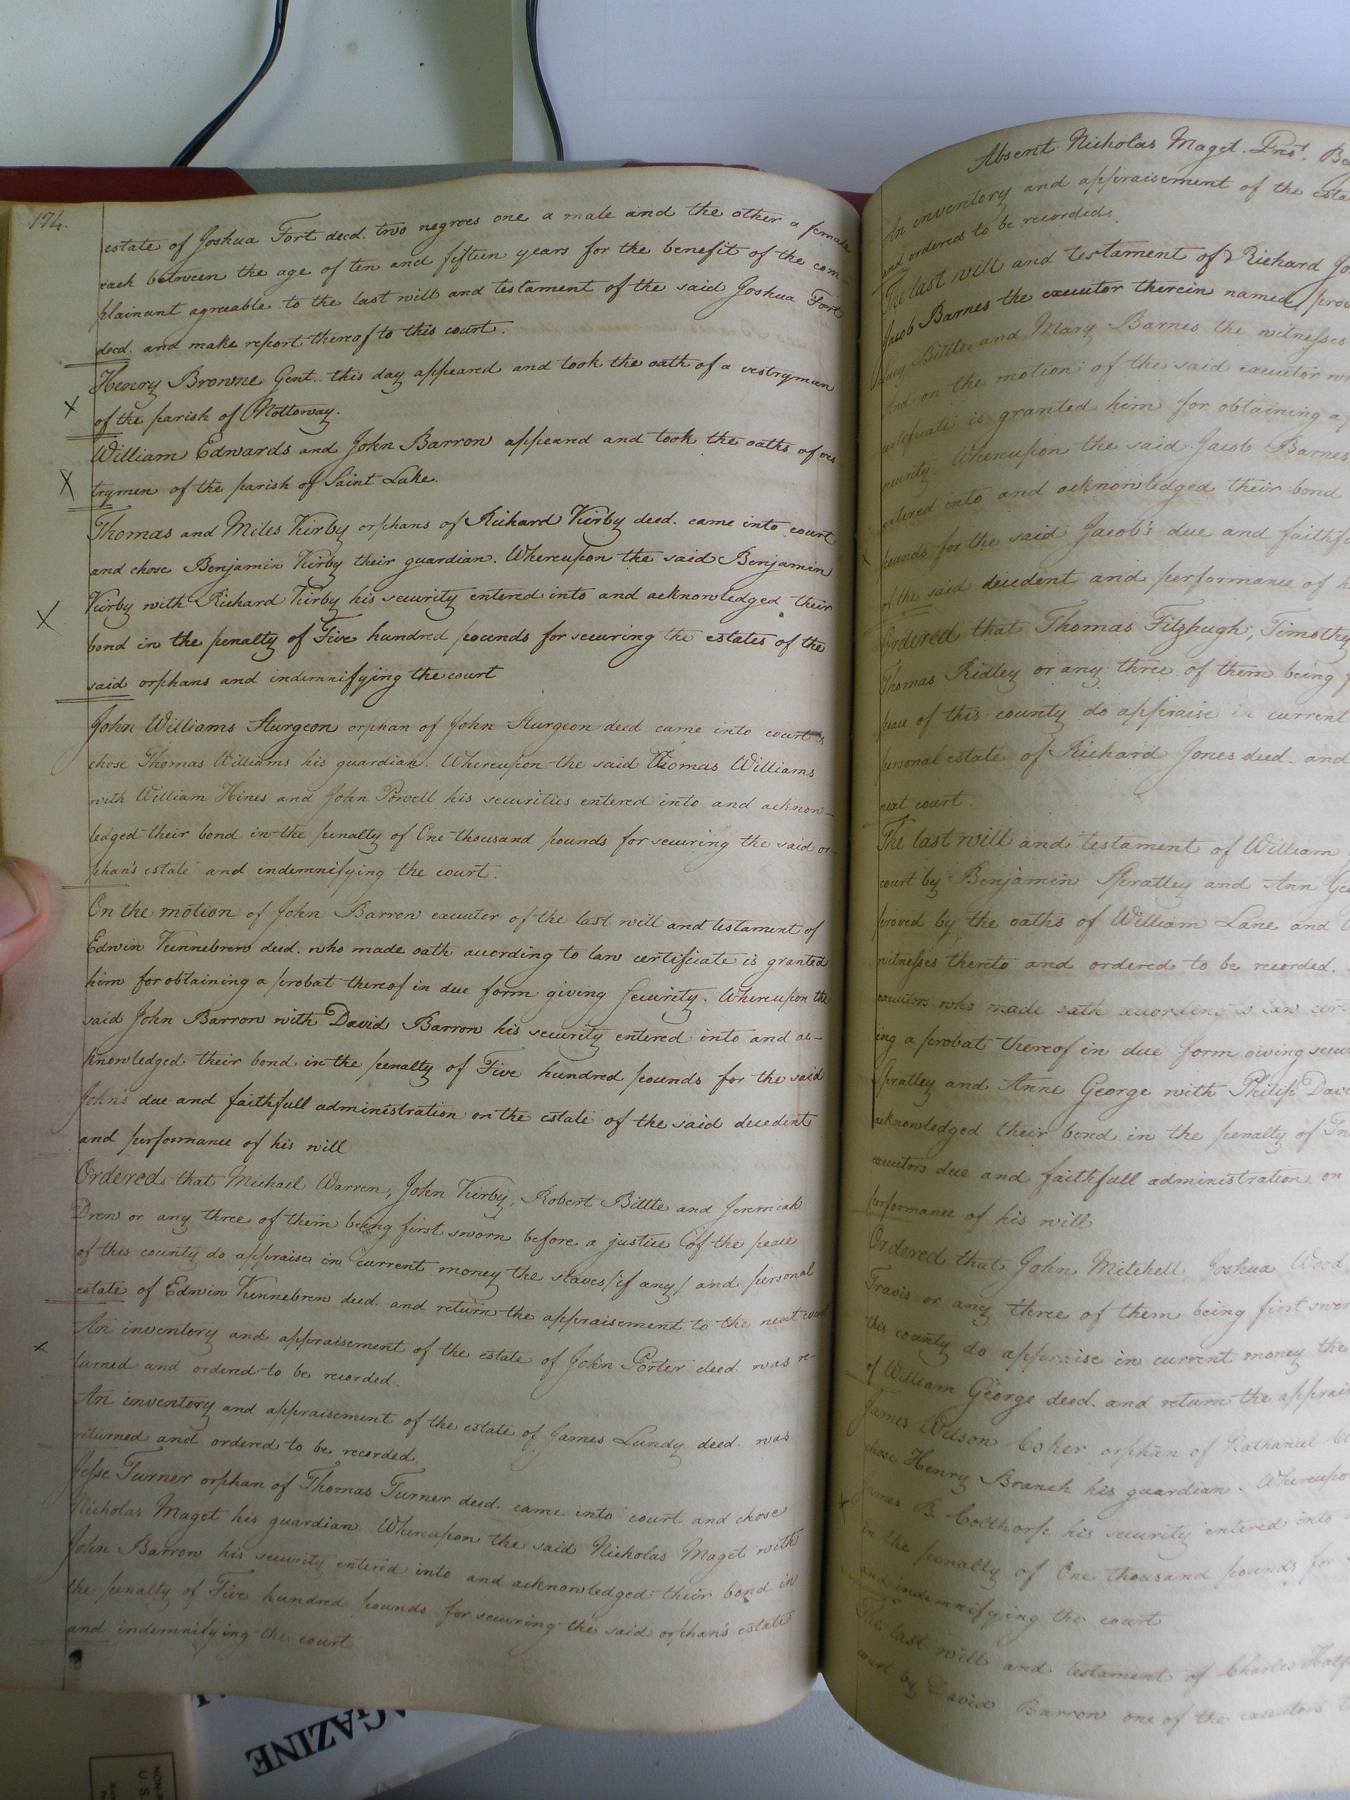 174.
estate of Joshua Fort decd. two negroes one a male and the other a female
each between the age of ten and fifteen years for the benefit of the com-
plainant agreable to the last will and testament of the said Joshua Fort
decd. and make report thereof to this court.
Henry Browne Gent. this day appeared and took the oath of a vestryman
of the parish of Nottoway.
William Edwards and John Barron appeard and took the oaths of ves-
trymen of the parish of Saint Luke.
Thomas and Miles Kirby orphans of Richard Kirby decd. came into court
and chose Benjamin Kirby their guardian. Whereupon the said Benjamin
Kirby with Richard Kirby his security entered into and acknowledged their
bond in the penalty of Five hundred pounds for securing the estates of the
said orphans and indemnifying the court
John Williams Sturgeon orphan of John Sturgeon decd came into court &
chose Thomas Williams his guardian. Whereupon the said Thomas Williams
with William Hines and John Powell his securities entered into and acknow-
ledged their bond in the penalty of One thousand pounds for securing the said or-
phan's estate and indemnifying the court.
On the motion of John Barron executor of the last will and testament of
Edwin Kinnebrew decd. who made oath according to law certificate is granted
him for obtaining a probat thereof in due form giving security. Whereupon the
said John Barron with David Barron his security entered into and ac-
knowledged their bond in the penalty of Five hundred pounds for the said
John's due and faithfull administration on the estate of the said decedent
and performance of his will
Ordered that Michael Warren, John Kirby, Robert Bittle and Jeremiah
Drew or any three of them being first sworn before a justice of the peace
of this county do appraise in current money the slaves (if any) and personal
estate of Edwin Kinnebrew decd. and return the appraisement to the next court
An inventory and appraisement of the estate of John Porter decd. was re-
turned and ordered to be recorded.
An inventory and appraisement of the estate of James Lundy decd. was
returned and ordered to be recorded.
Jesse Turner orphan of Thomas Turner decd. came into court and chose
Nicholas Maget his guardian. Whereupon the said Nicholas Maget with
John Barrow his security entered into and acknowledged their bond in
the penalty of Five hundred pounds for securing the said orphan's estate
and indemnifying the court
Absent Nicholas Maget. Prst.
An inventory and appraisement of the esta
and ordered to be recorded.
The last will and testament of Richard Jo
Jacob Barnes the executor therein named, prov
Bittle and Mary Barnes the witnesses
And on the motion of the said executor
certificate is granted him for obtaining a
security. Whereupon the said Jacob Barnes
entered into and acknowledged their bond
pounds for the said Jacob's due and faithfu
of the said decedent and performance of h
Ordered that Thomas Fitzhugh, Timothy
Thomas Ridley or any three of them being f
peace of this county do appraise in current
personal estate of Richard Jones decd. and
next court.
The last will and testament of William
court by Benjamin Spratley and Ann Ge
proved by the oaths of William Lane and
witnesses thereto and ordered to be recorded.
executors who made oath according to law cer-
ing a probat thereof in due form giving secu
Spratley and Anne George with Philip Dav
acknowledged their bond in the penalty of
executors due and faithfull administration on
performance of his will
Ordered that John Mitchell Joshua Wood
Travis or any three of them being first swor
this county do appraise in current money the
of William George decd. and return the apprais
James Wilson Coker orphan of Nathaniel
chose Henry Branch his guardian. Whereupon
James B. Colthorp his security entered into
in the penalty of One thousand pounds for
and indemnifying the court
The last will and testament of Charles
court by David Barrow one of the executors
MAGAZINE
NON-
U.S.